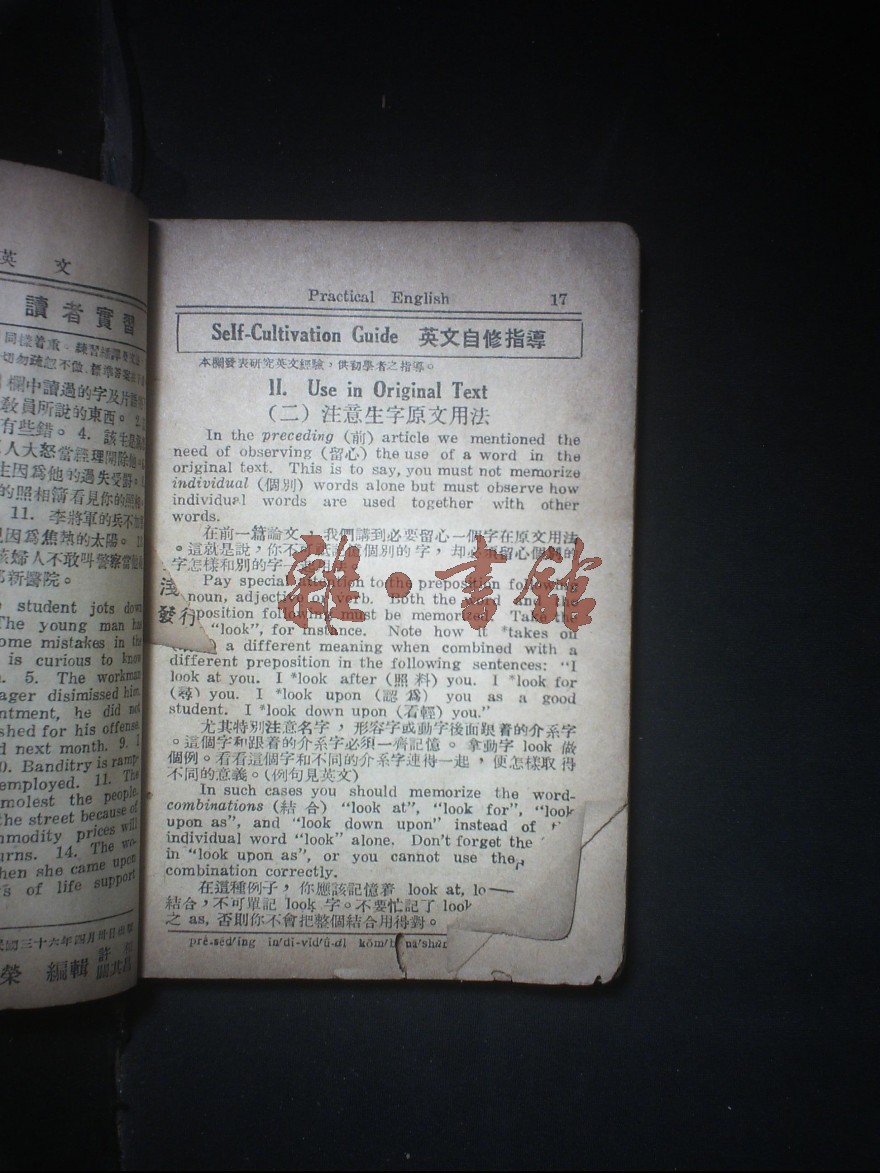 英 文
讀者實習
欄中讀過的字及片語
教員所說的東西。2.
有些錯。4. 該生是
人大怒當經理開除他。
生因爲他的過失受罰。
的照相簿看見你的照
11. 李將軍的兵不
見因爲焦熱的太陽。
該婦人不敢叫警察當
新醫院。
student jots down
The young man has
some mistakes in the
is curious to know
5. The workman
ager disimissed him.
ntment, he did not
shed for his offense
d next month. 9. I
0. Banditry is ramp-
employed. 11. The
molest the people.
the street because of
mmodity prices will
urns. 14. The wo-
hen she came upon
s of life support
國三十六年四月卅日出版
榮 編輯
Practical English 17
Self-Cultivation Guide 英文自修指導
本欄發表研究英文經驗，供初學者之指導。
II. Use in Original Text
（二）注意生字原文用法
In the preceding (前) article we mentioned the
need of observing (留心) the use of a word in the
original text. This is to say, you must not memorize
individual (個別) words alone but must observe how
individual words are used together with other
words.
在前一篇論文，我們講到必要留心一個字在原文用法
。這就是說，你不可祇記憶個別的字，却必須留心個別的
字怎樣和別的字一起用法。
Pay special attention to the preposition following
noun, adjective or verb. Both the word and the
position following must be memorized. Take the
"look", for instance. Note how it *takes on
a different meaning when combined with a
different preposition in the following sentences: "I
look at you. I *look after (照料) you. I *look for
(尋) you. I *look upon (認爲) you as a good
student. I *look down upon (看輕) you."
尤其特別注意名字，形容字或動字後面跟着的介系字
。這個字和跟着的介系字必須一齊記憶。拿動字 look 做
個例。看看這個字和不同的介系字連得一起，便怎樣取得
不同的意義。(例句見英文)
In such cases you should memorize the word-
combinations (結合) "look at", "look for", "look
upon as", and "look down upon" instead of
individual word "look" alone. Don't forget the
in "look upon as", or you cannot use the
combination correctly.
在這種例子，你應該記憶着 look at, lo
結合，不可單記 look 字。不要忘記了 look
之 as, 否則你不會把整個結合用得對。
prê-sēd'ing in'di-vid'û-ăl kŏm'bi-nā'shŭn
淺
發行
雜·書館